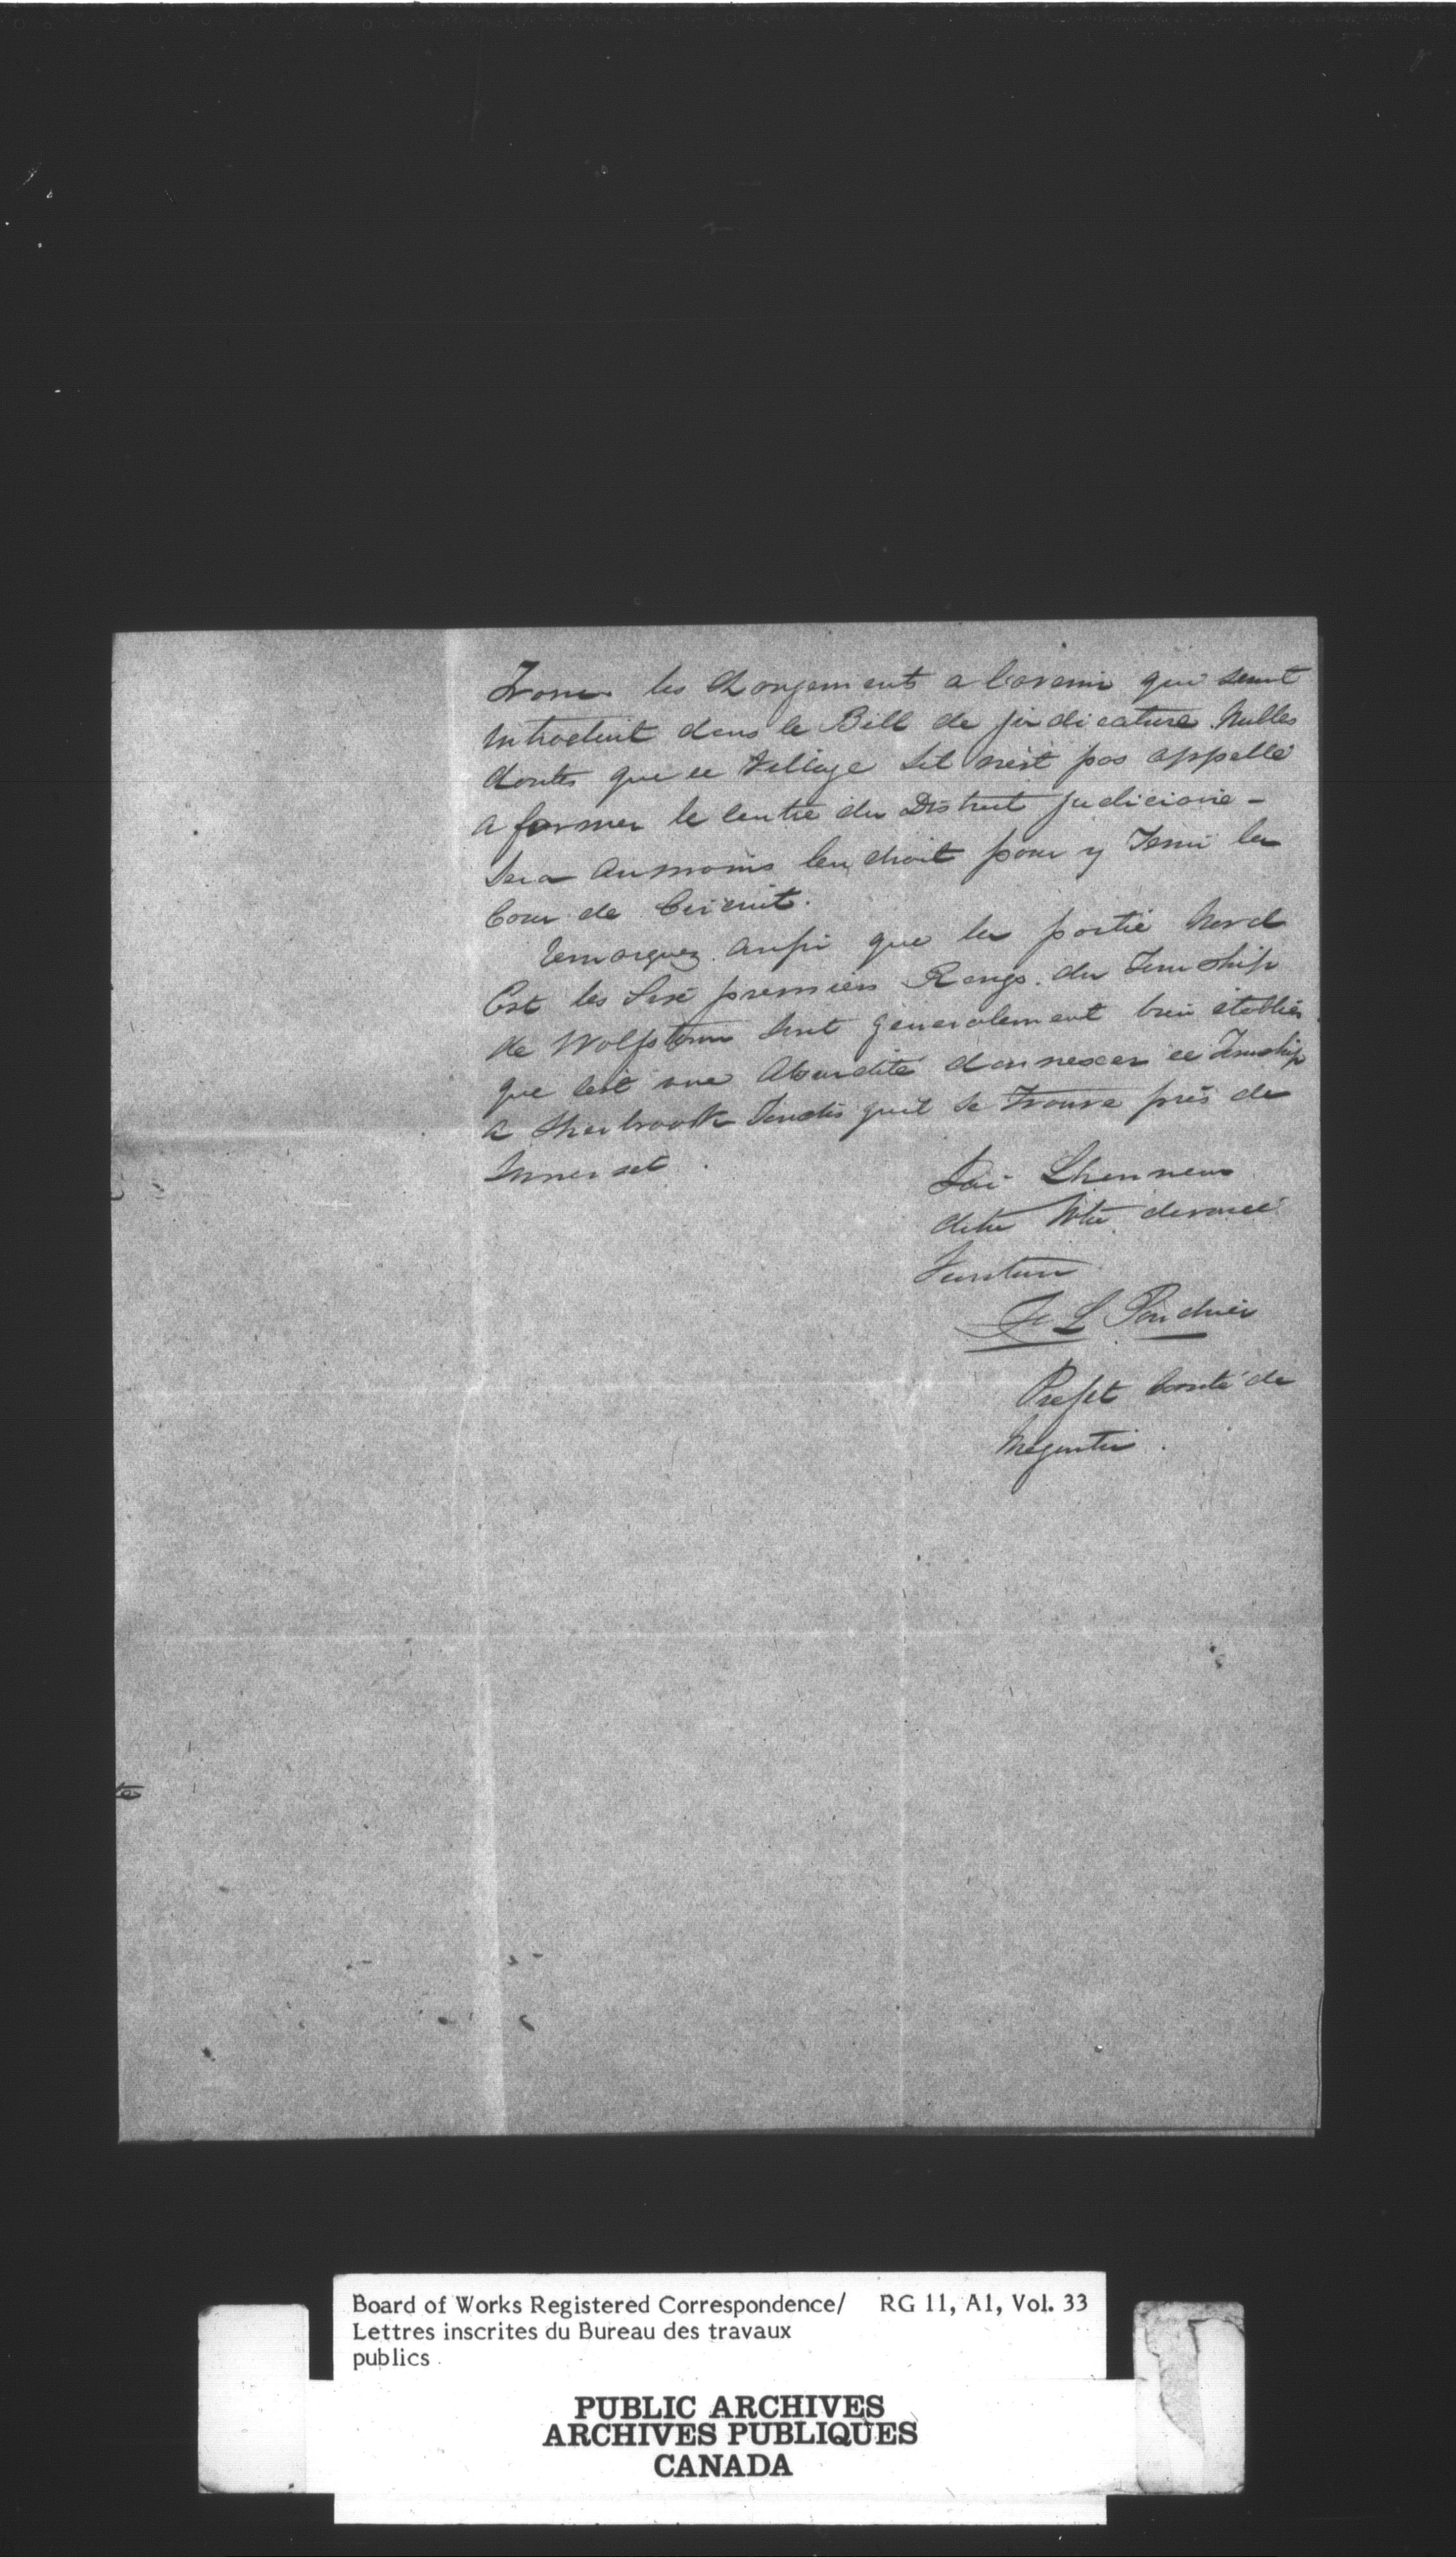 les Changements a lavenir qui seront
introduit dans le Bill de judicature Nulles
doutes que ce Village sil nest pas appellé
a former le centre du District judiciaire -
sera aumoins lendroit pour y Tenir la
Cour de Circuit.
Remarquez aussi que la partie Nord
Est les Six premiers Rangs du Township
de Wolfstown sont généralement bien établies
que cest une Absurdité dannexer ce Township
a Sherbrook Tandis quil se trouve près de
Somerset.
Jai Lhonneur
detre Votre devoué
Serviteur
Prefet Comté de
Megantic.
te
Board of Works Registered Correspondence/ RG 11, A1, Vol. 33
Lettres inscrites du Bureau des travaux
publics
PUBLIC ARCHIVES
ARCHIVES PUBLIQUES
CANADA